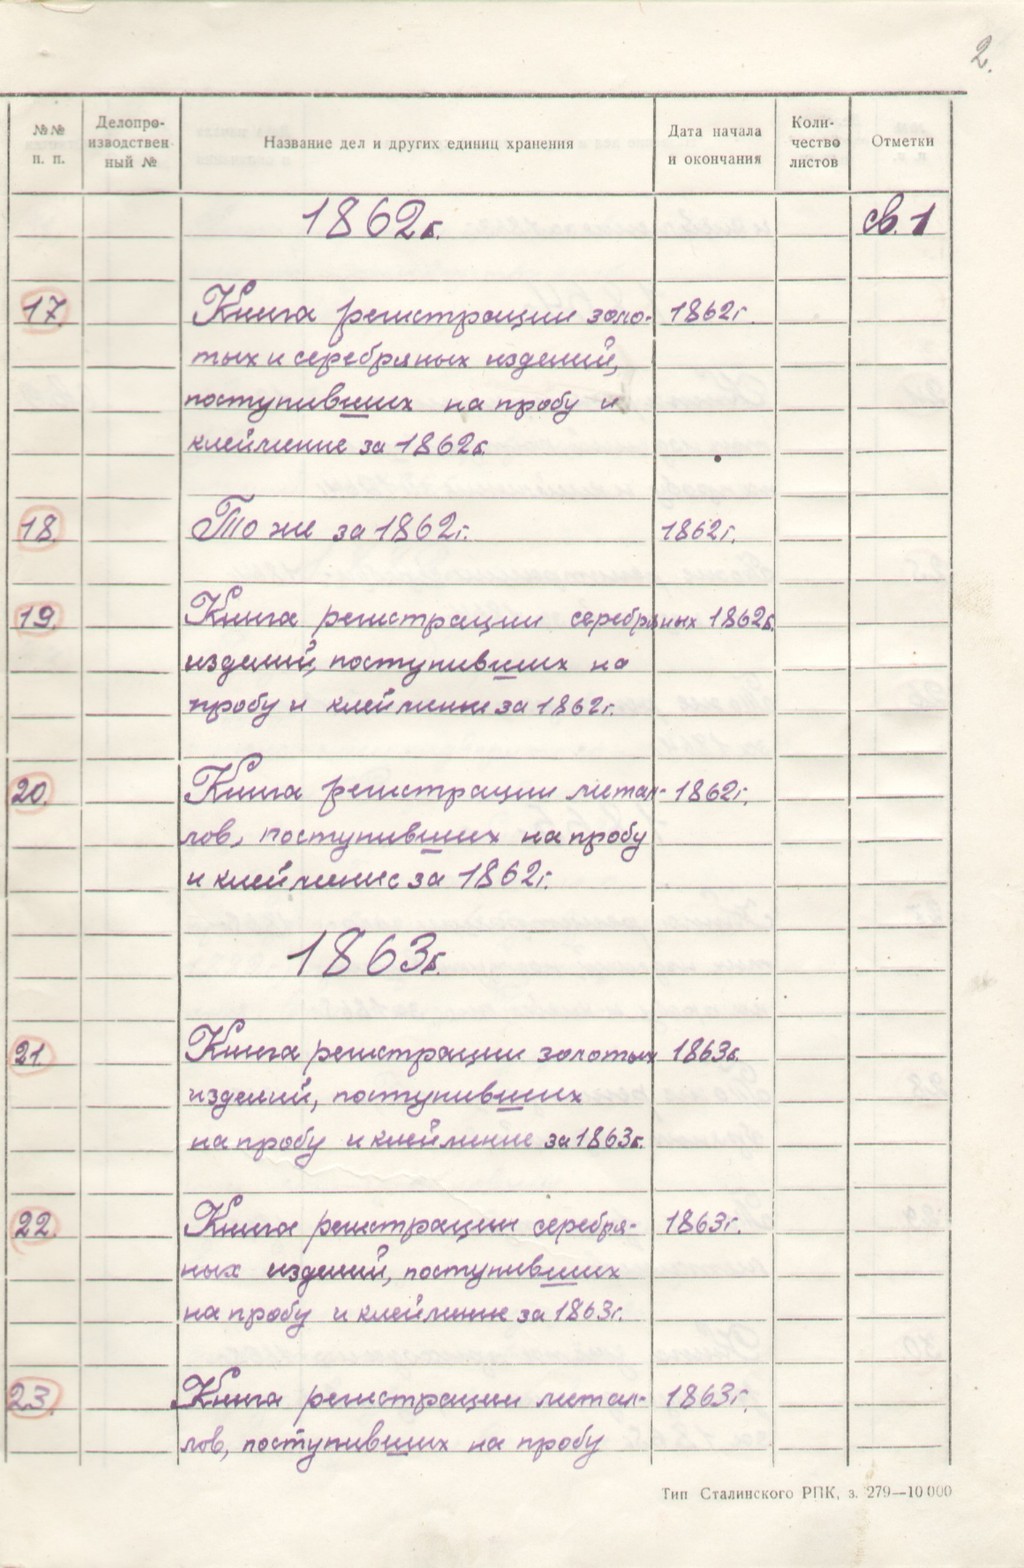 2.
№№ п. п.
Делопроизводственный №
Название дел и других единиц хранения
Дата начала и окончания
Количество листов
Отметки
1862г. св. 1
17. Книга регистрации золо- 1862г.
тых и серебряных изделий,
поступивших на пробу и
клеймение за 1862г.
18. То же за 1862г. 1862г.
19. Книга регистрации серебряных 1862г.
изделий, поступивших на
пробу и клеймение за 1862г.
20. Книга регистрации метал- 1862г.
лов, поступивших на пробу
и клеймение за 1862г.
1863г.
21. Книга регистрации золотых 1863г.
изделий, поступивших
на пробу и клеймение за 1863г.
22. Книга регистрации серебря- 1863г.
ных изделий, поступивших
на пробу и клеймение за 1863г.
23. Книга регистрации метал- 1863г.
лов, поступивших на пробу
Тип Сталинского РПК, з. 279—10 000